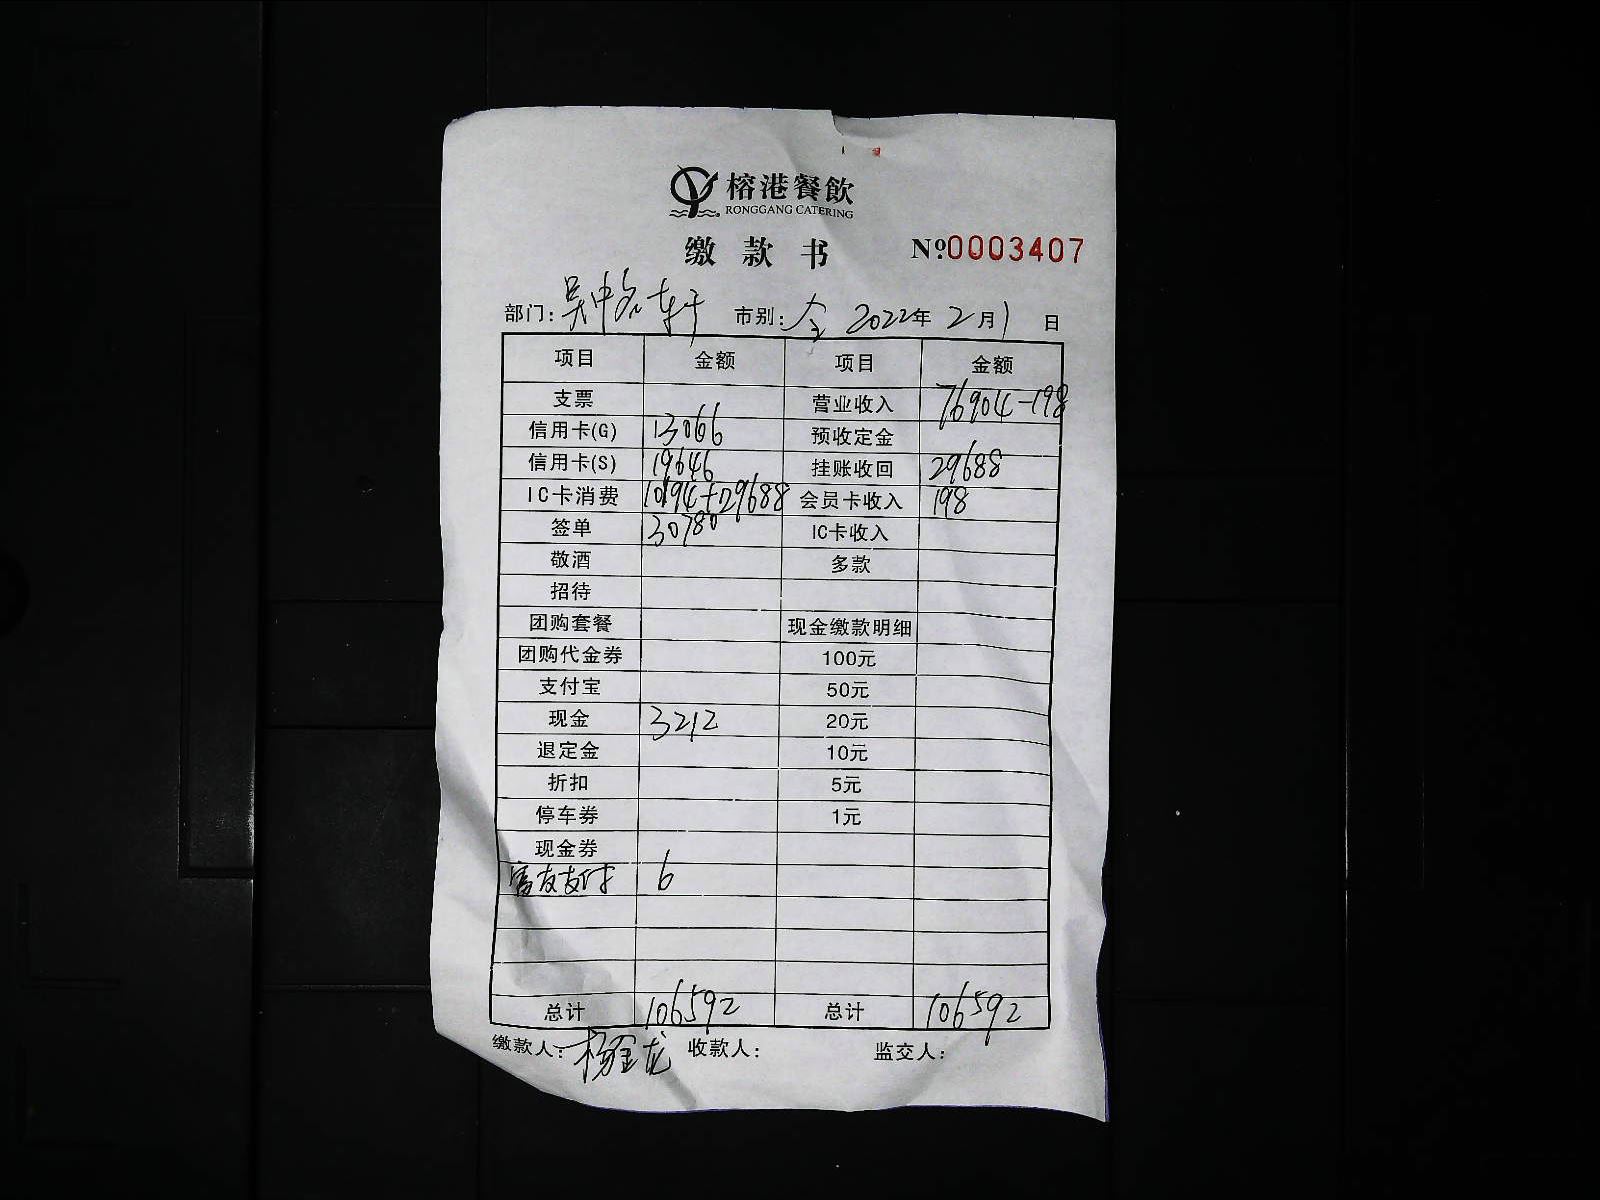 榕港餐飲
RONGGANG CATERING
缴款书 №0003407
部门: 吴中名轩 市别: 全 2022年 2月1日
项目 金额 项目 金额
支票 营业收入 76904-198
信用卡(G) 13066 预收定金
信用卡(S) 19646 挂账收回 29688
IC卡消费 10194+29688 会员卡收入 198
签单 30780 IC卡收入
敬酒 多款
招待
团购套餐 现金缴款明细
团购代金券 100元
支付宝 50元
现金 3212 20元
退定金 10元
折扣 5元
停车券 1元
现金券
富友支付 6
总计 106592 总计 106592
缴款人: 杨金龙 收款人: 监交人: